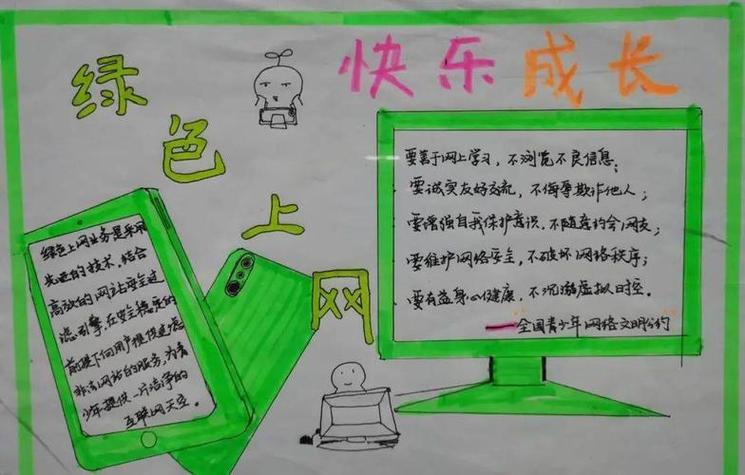 绿色上网
快乐成长
要善于网上学习，不浏览不良信息；
要诚实友好交流，不侮辱欺诈他人；
要增强自我保护意识，不随意约会网友；
要维护网络安全，不破坏网络秩序；
要有益身心健康，不沉溺虚拟时空。
——全国青少年网络文明公约
绿色上网业务是采用
先进的技术，结合
高效的网站安全过
滤引擎，在安全稳定的
前提下向用户提供过滤
非法网站的服务，为青
少年提供一片洁净的
互联网天空。